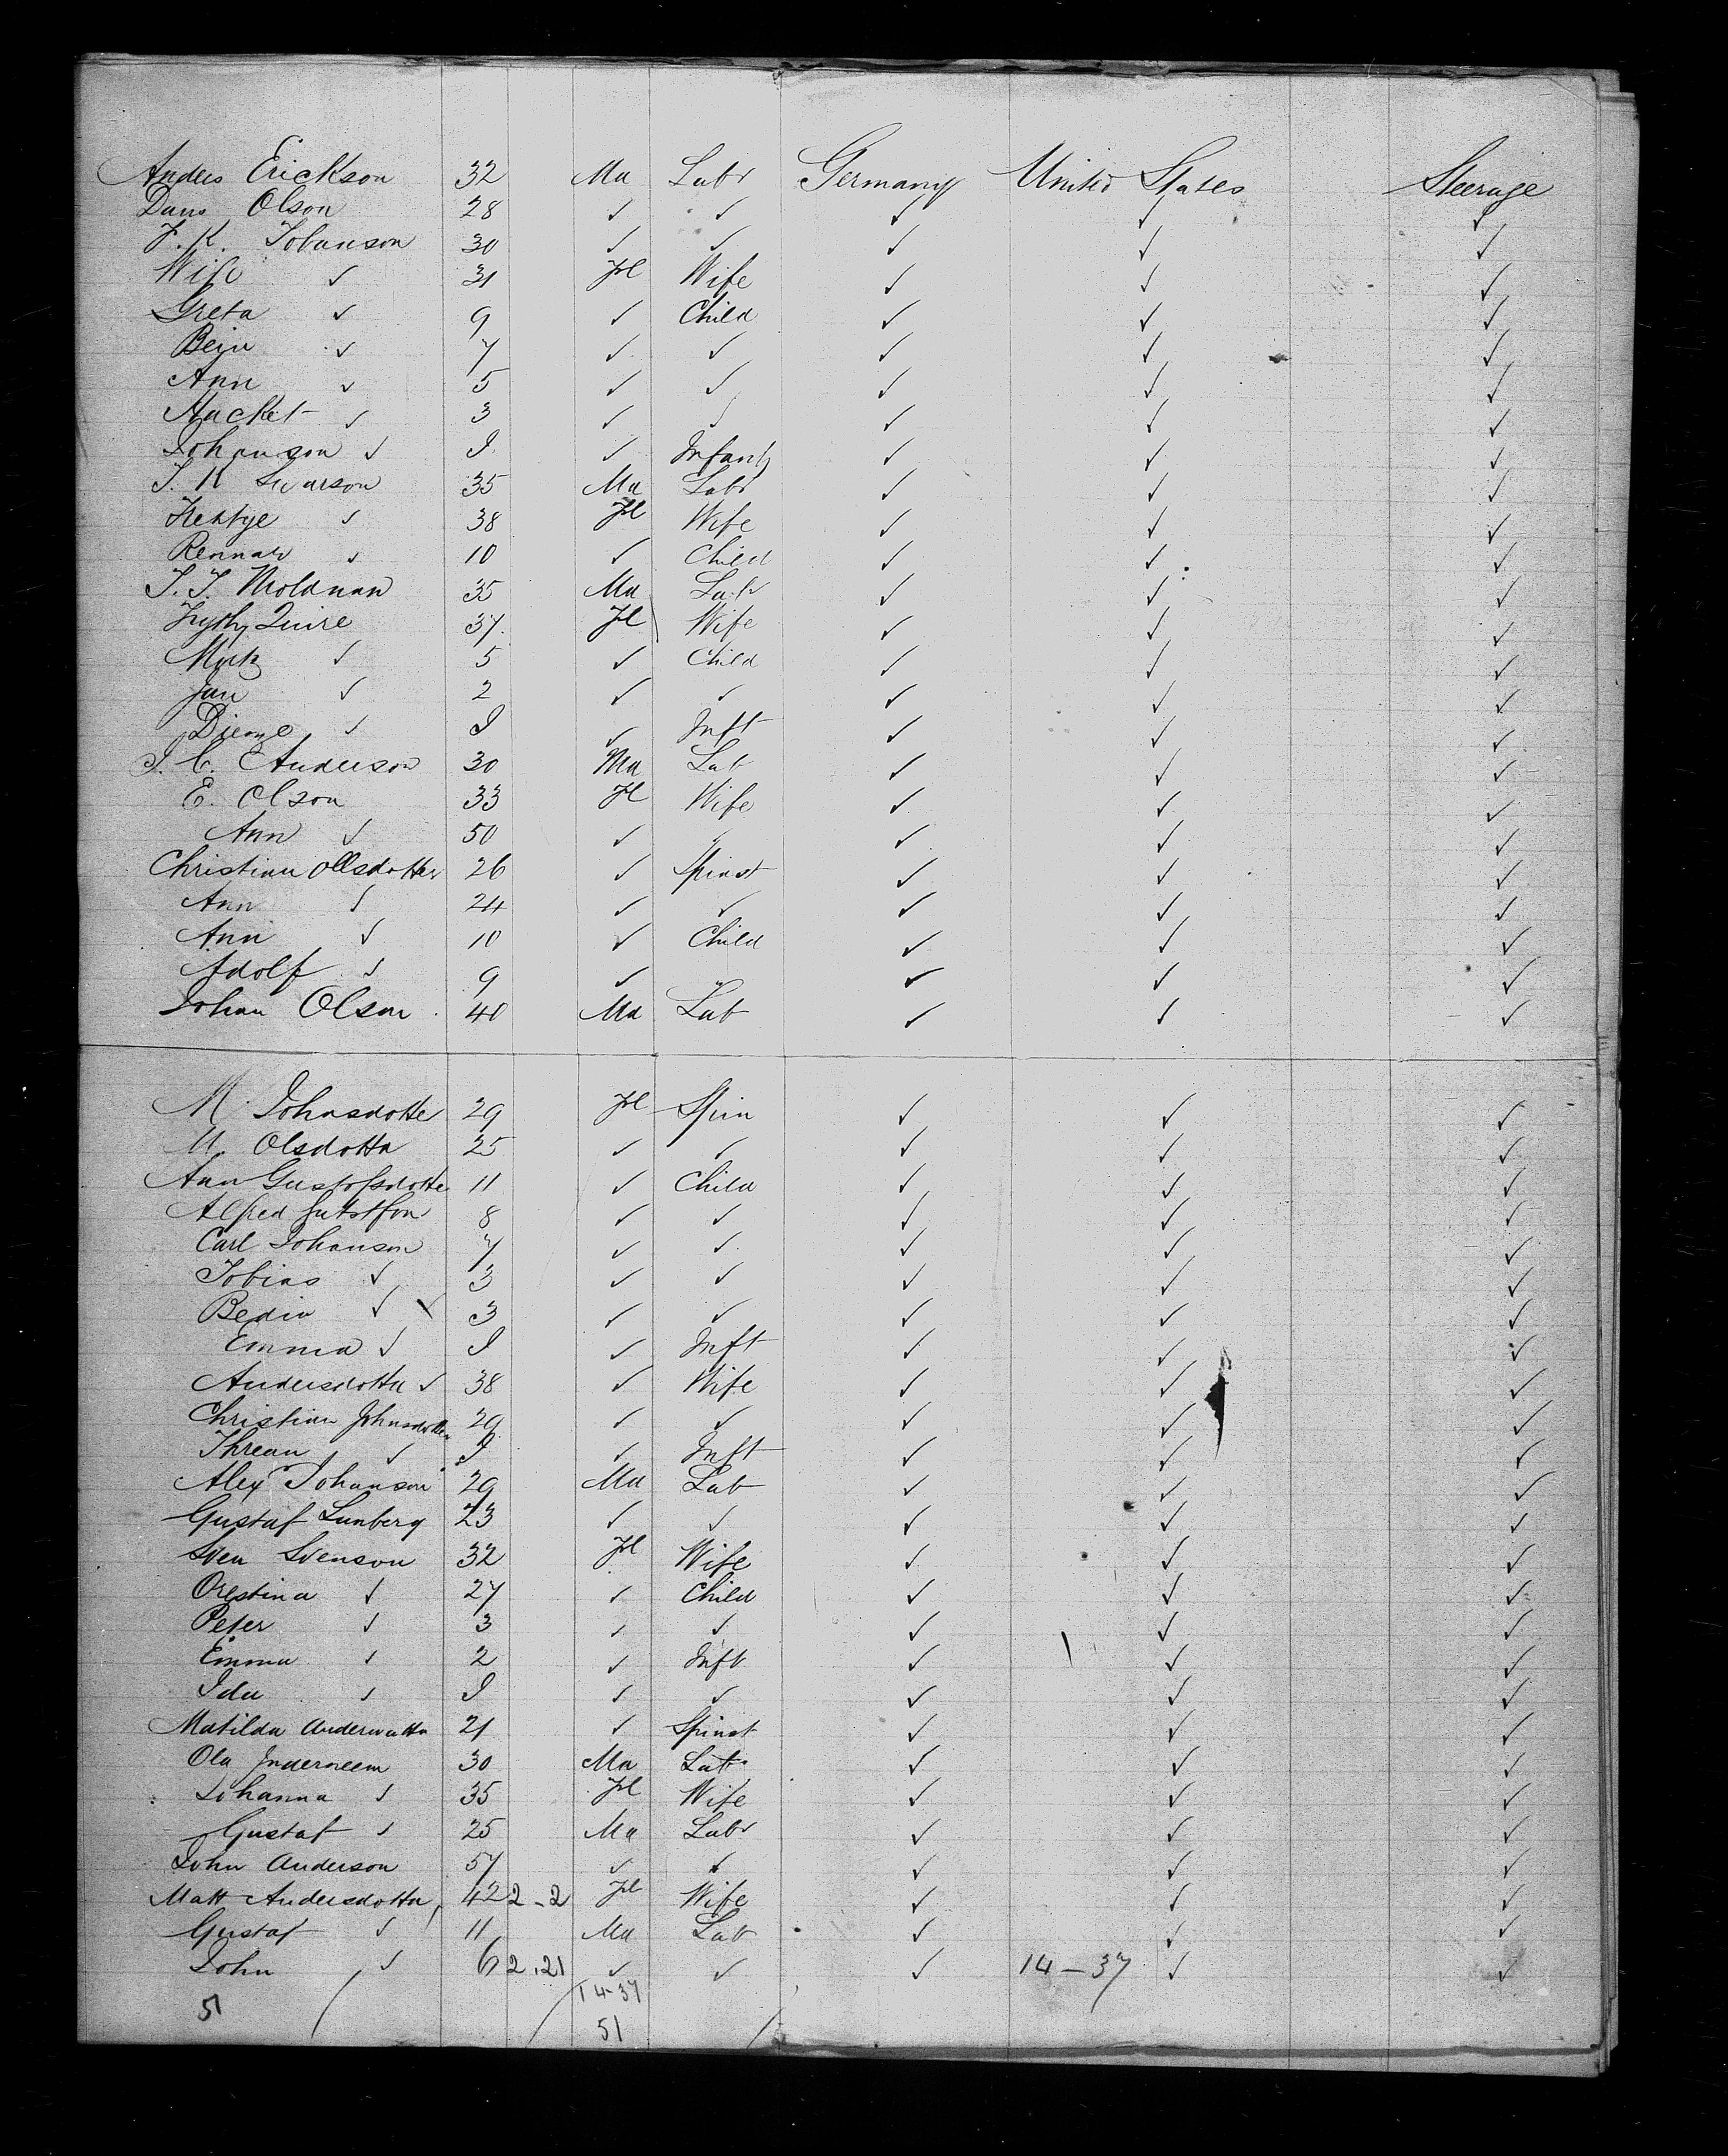 Anders Erickson 32 Ma Labr Germany United States Steerage
Dans Olson 28 ✓ ✓ ✓ ✓ ✓
J. K. Johanson 30 ✓ ✓ ✓ ✓ ✓
Wife ✓ 31 Fl Wife ✓ ✓ ✓
Greta ✓ 9 ✓ Child ✓ ✓ ✓
✓ 7 ✓ ✓ ✓ ✓ ✓
Ann ✓ 5 ✓ ✓ ✓ ✓ ✓
✓ 3 ✓ ✓ ✓ ✓ ✓
Johanson ✓ I ✓ Infant ✓ ✓ ✓
35 Ma Labr ✓ ✓ ✓
✓ 38 Fl Wife ✓ ✓ ✓
✓ 10 ✓ Child ✓ ✓ ✓
35 Ma Labr ✓ ✓ ✓
37 Fl Wife ✓ ✓ ✓
✓ 5 ✓ Child ✓ ✓ ✓
Jan ✓ 2 ✓ ✓ ✓ ✓ ✓
✓ I ✓ Inft ✓ ✓ ✓
Anderson 30 Ma Lab ✓ ✓ ✓
E. Olson 33 Fl Wife ✓ ✓ ✓
Ann ✓ 50 ✓ ✓ ✓ ✓ ✓
Christian Ollsdotter 26 ✓ Spinst ✓ ✓ ✓
Ann ✓ 24 ✓ ✓ ✓ ✓ ✓
Ann ✓ 10 ✓ Child ✓ ✓ ✓
Adolf ✓ 9 ✓ " ✓ ✓ ✓
Johan Olson 40 Ma Lab ✓ ✓ ✓
M. Johnsdotte 29 Fl Spin ✓ ✓ ✓
Olsdotta 25 ✓ ✓ ✓ ✓ ✓
Ann Gustofsdotte 11 ✓ Child ✓ ✓ ✓
Alfred 8 ✓ ✓ ✓ ✓ ✓
Carl Johanson 7 ✓ ✓ ✓ ✓ ✓
Tobias ✓ 3 ✓ ✓ ✓ ✓ ✓
✓ 3 ✓ ✓ ✓ ✓ ✓
Emma ✓ I ✓ Inft ✓ ✓ ✓
Andersdotta ✓ 38 ✓ Wife ✓ ✓ ✓
Christian Johnsdotter 29 ✓ ✓ ✓ ✓ ✓
✓ I ✓ Inft ✓ ✓ ✓
Alex Johanson 29 Ma Lab ✓ ✓ ✓
Gustaf Lunberg 23 ✓ ✓ ✓ ✓ ✓
Sven Svenson 32 Fl Wife ✓ ✓ ✓
Orestina ✓ 27 ✓ Child ✓ ✓ ✓
Peter ✓ 3 ✓ ✓ ✓ ✓ ✓
Emma ✓ 2 ✓ Inft ✓ ✓ ✓
Ida ✓ I ✓ ✓ ✓ ✓ ✓
Matilda 21 ✓ Spinst ✓ ✓ ✓
Ola 30 Ma Lab ✓ ✓ ✓
Johanna ✓ 35 Fl Wife ✓ ✓ ✓
Gustaf ✓ 25 Ma Labr ✓ ✓ ✓
John Anderson 57 ✓ ✓ ✓ ✓ ✓
Matt Andersdotta 42 2-2 Fl Wife ✓ ✓ ✓
Gustaf ✓ 11 Ma Lab ✓ ✓ ✓
John ✓ 6 2.21 ✓ ✓ ✓ 14-37 ✓ ✓
14-37
51 51